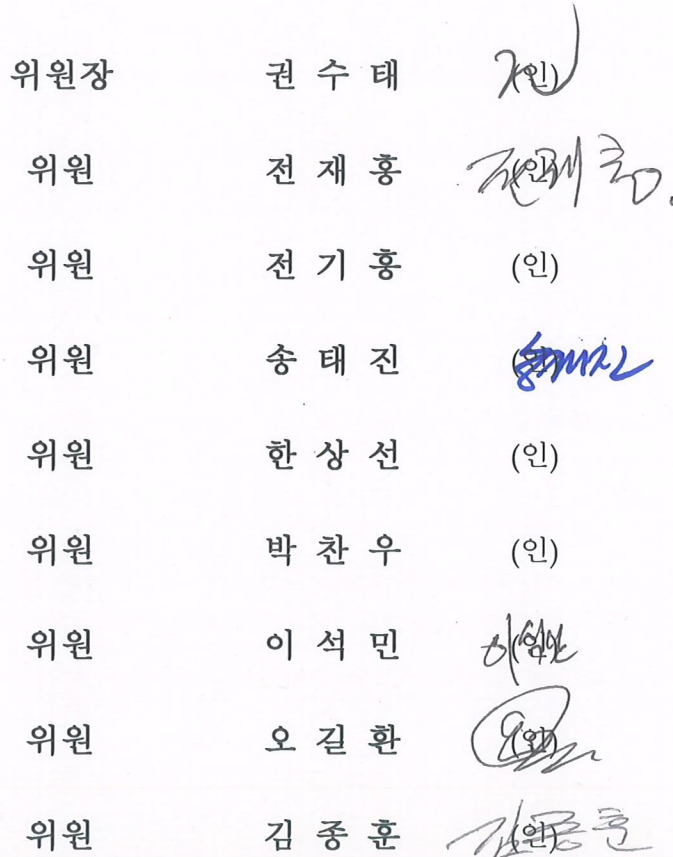 위원장 권 수 태 (인)
위원 전 재 홍 (인) 전재홍
위원 전 기 홍 (인)
위원 송 태 진 (인) 송태진
위원 한 상 선 (인)
위원 박 찬 우 (인)
위원 이 석 민 (인)
위원 오 길 환 (인)
위원 김 종 훈 (인) 김종훈